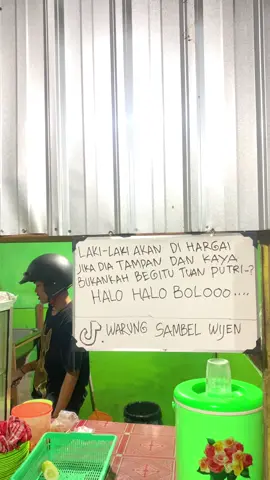 LAKI-LAKI AKAN DI HARGAI
JIKA DIA TAMPAN DAN KAYA
BUKANKAH BEGITU TUAN PUTRI..?
HALO HALO BOLOOO....
WARUNG SAMBEL WIJEN